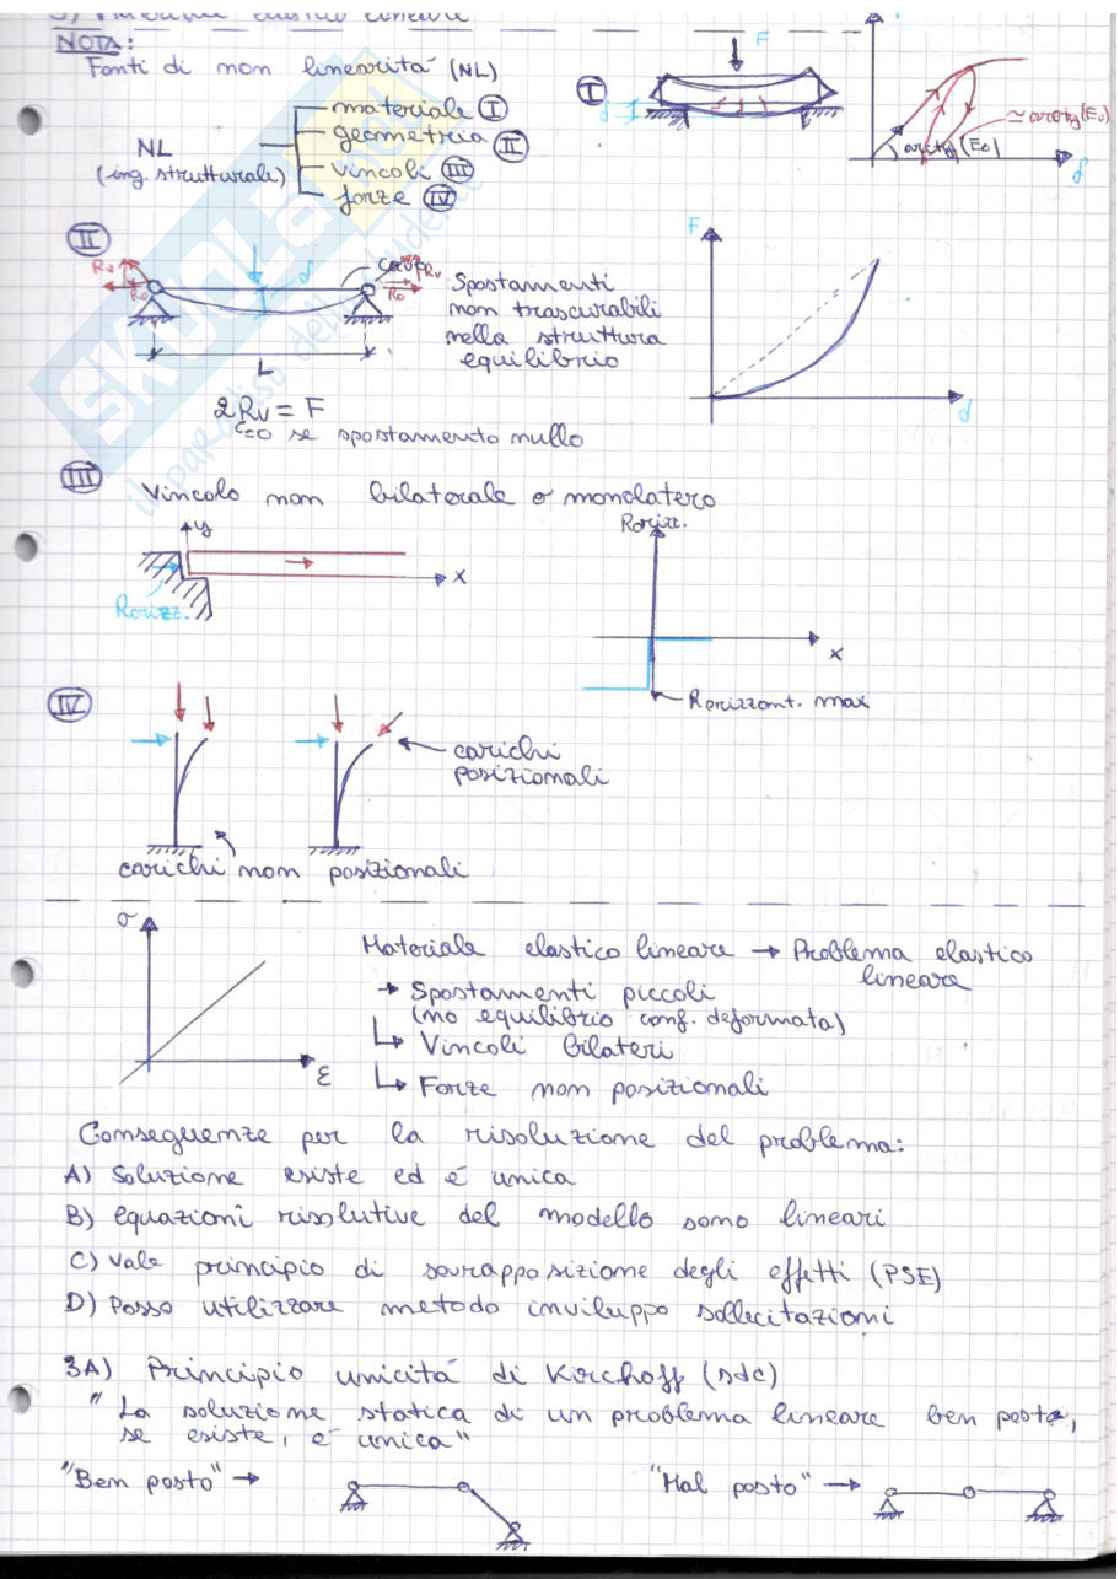 3) Materiale elastico lineare
NOTA:
Fonti di non linearità (NL)
NL
(ing. strutturali)
materiale I
geometria II
vincoli III
forze IV
I
F
δ
≃ arctg(E₀)
arctg(E₀)
δ
II
Rv
Ro
δ
Rv
Ro
L
Spostamenti
non trascurabili
nella struttura
equilibrio
F
δ
2Rv = F
=0 se spostamento nullo
III
Vincolo non bilaterale o monolatero
y
x
Rorizz.
Rorizz.
x
Rorizzont. max
IV
carichi
posizionali
carichi non posizionali
σ
ε
Materiale elastico lineare → Problema elastico
lineare
→ Spostamenti piccoli
(no equilibrio conf. deformata)
↳ Vincoli bilateri
↳ Forze non posizionali
Conseguenze per la risoluzione del problema:
A) Soluzione esiste ed é unica
B) equazioni risolutive del modello sono lineari
C) Vale principio di sovrapposizione degli effetti (PSE)
D) Posso utilizzare metodo inviluppo sollecitazioni
3A) Principio unicitá di Kirchoff (sdc)
"La soluzione statica di un problema lineare ben posto,
se esiste, é unica"
"Ben posto" →
"Mal posto" →
SKUOLA.net
il paradiso dello studente